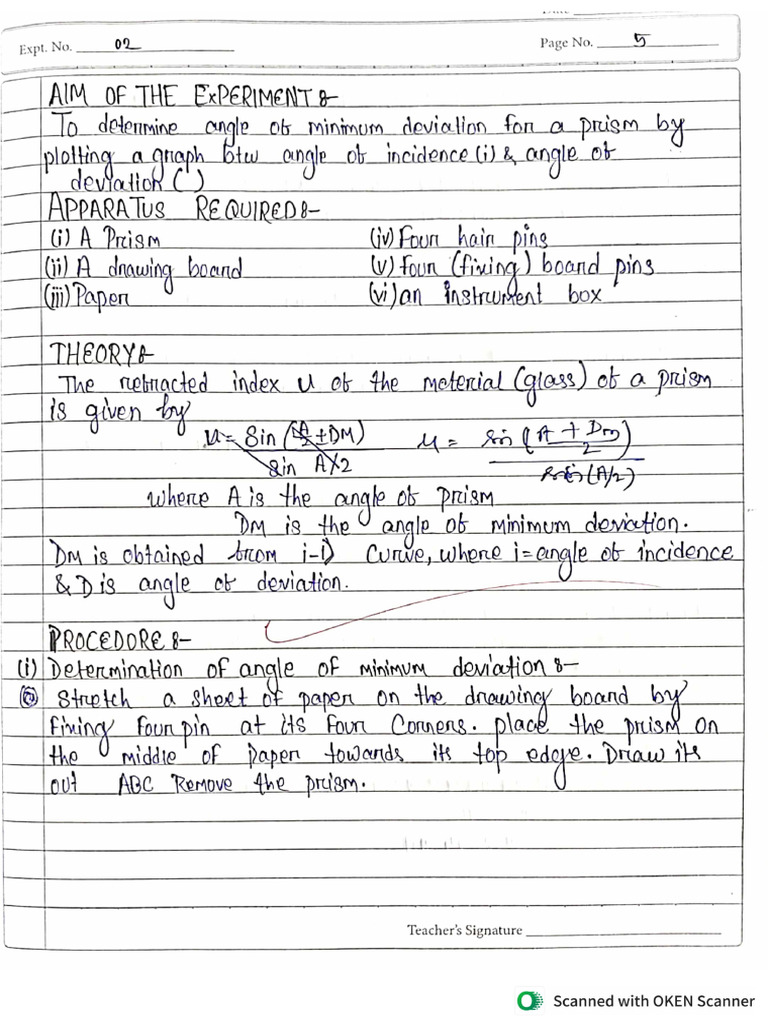 Expt. No. 02
Page No. 5
AIM OF THE EXPERIMENT :-
To determine angle of minimum deviation for a prism by
plotting a graph btw angle of incidence (i) & angle of
deviation ( )
APPARATUS REQUIRED :-
(i) A Prism (iv) Four hair pins
(ii) A drawing board (v) four (fixing) board pins
(iii) Paper (vi) an instrument box
THEORY :-
The refracted index u of the material (glass) of a prism
is given by
u = Sin (A/2 + DM) / sin A/2 u = sin (A + Dm / 2) / sin (A/2)
where A is the angle of prism
DM is the angle of minimum deviation.
DM is obtained from i-D Curve, where i = angle of incidence
& D is angle of deviation.
PROCEDORE :-
(i) Determination of angle of minimum deviation :-
(a) Stretch a sheet of paper on the drawing board by
fixing four pin at its four Corners. place the prism on
the middle of paper towards its top edge. Draw its
out ABC Remove the prism.
Teacher's Signature
Scanned with OKEN Scanner